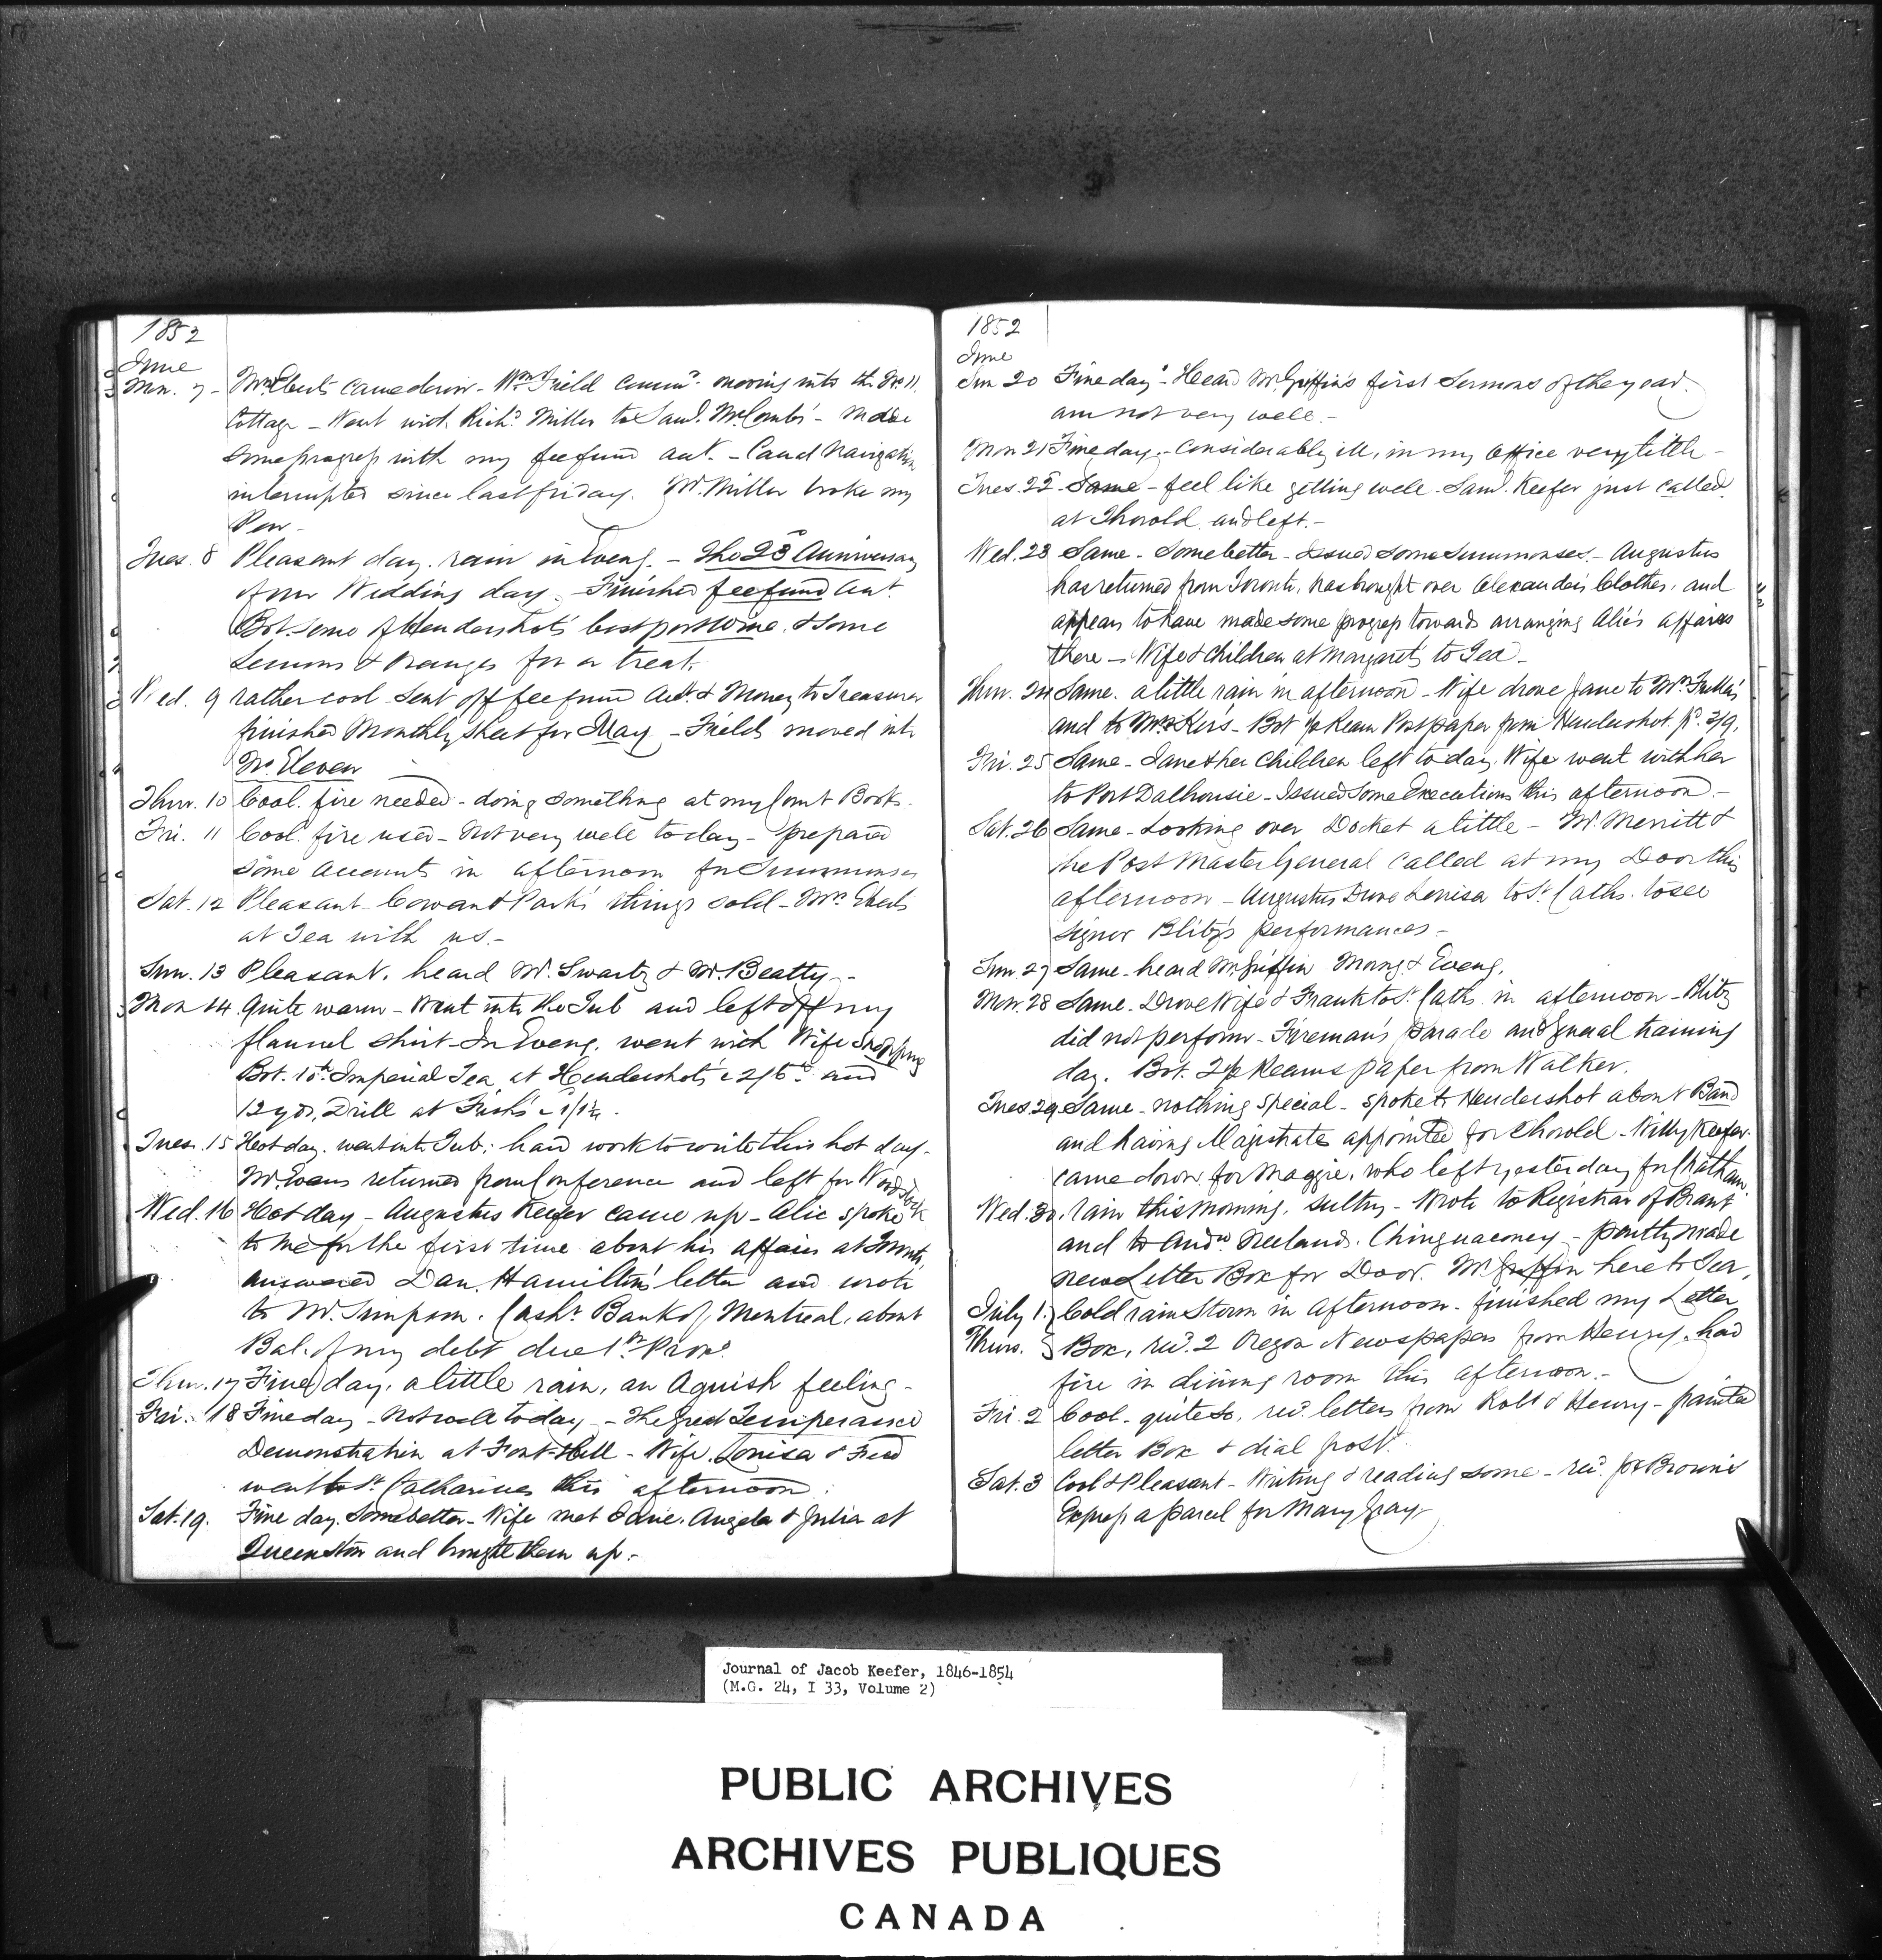 1852
June
Mon. 7 - Mrs. Eberts came down - Wm. Field commd. moving into the No 11.
Cottage - Went with Richd. Miller to Saml. McCombs' - made
some progress with my fee fund act. - Canal Navigation
interrupted since last friday. Mr. Miller broke my
Pen -
Tues. 8 Pleasant day. rain in Eveng. - The 23d Anniversary
of our Wedding day. Finished fee fund act.
Bot. some of Hendershot's best port wine, & some
Lemons & oranges for a treat.
Wed. 9 rather cool - Sent off fee fund Act. & Money to Treasurer
finished Monthly sheet for May - Fields moved into
No. Eleven
Thur. 10 Cool. fire needed - doing something at my Court Books.
Fri. 11 Cool. fire used - Not very well today - prepared
some accounts in afternoon for Summonses
Sat. 12 Pleasant - Cowan & Park's things sold - Mrs. Eberts
at Tea with us. -
Sun. 13 Pleasant. heard Mr. Swartz & Mr. Beatty -
Mon 14 Quite warm - Went into the Tub and left off my
flannel shirt - In Eveng. went with Wife shopping
Bot. 10 lb Imperial Tea at Hendershot's @ 2/6 and
12 yds. Drill at Fish's @ 1/1¼.
Tues. 15 Hot day. went into Tub; hard work to write this hot day -
Mr. Evans returned from Conference and left for Woodstock
Wed. 16 Hot day - Augustus Keefer came up - Alic spoke
to me for the first time about his affairs at Toronto,
answered Dan. Hamilton's letter and wrote
to Mr. Simpson. Cashr. Bank of Montreal, about
Bal. of my debt due 1st Proxo.
Thur. 17 Fine day, a little rain, an Aguish feeling -
Fri. 18 Fine day - Not well today - The great Temperance
Demonstration at Font-Hill - Wife, Louisa & Fred
went to St. Catharines this afternoon.
Sat. 19. Fine day. Some better - Wife met Janie, Angela & Julia at
Queenston and brought them up. -
1852
June
Sun 20 Fine day - Heard Mr. Griffin's first Sermons of the year.
am not very well -
Mon 21 Fine day. - Considerably ill, in my office very little -
Tues. 22 - Same - feel like getting well - Saml. Keefer just called
at Thorold. and left. -
Wed. 23 Same - Some better - Issued some Summonses. - Augustus
has returned from Toronto, has brought over Alexander's Clothes, and
appears to have made some progress towards arranging Alic's affairs
there - Wife & Children at Margaret's to Tea -
Thur. 24 Same. a little rain in afternoon - Wife drove Jane to Mrs.
and to Mrs. Kers - Bot ½ Ream Post paper from Hendershot pd. 3/9.
Fri. 25 Same - Jane & her Children left to day. Wife went with her
to Port Dalhousie - Issued Some Executions this afternoon. -
Sat. 26 Same - Looking over Docket a little - Mr. Merritt &
the Post Master General called at my Door this
afternoon - Augustus Drove Louisa to St. Caths. to see
Signor Blitz's performances -
Sun. 27 Same - heard Mr. Griffin Morng. & Eveng.
Mon. 28 Same. Drove Wife & Frank to St. Caths. in afternoon - Blitz
did not perform - Fireman's parade and general training
day. Bot. 2½ Reams paper from Walker.
Tues. 29 Same - nothing special - spoke to Hendershot about Band
and having Magistrate appointed for Thorold - Willy Keefer
came down for Maggie, who left yesterday for Chatham.
Wed. 30. Rain this morning. sultry - Wrote to Registrar of Brant
and to Andw. Neeland. Chinguacousy - partly made
new Letter Box for Door. Mr. Griffin here to Tea.
July 1. Cold rain Storm in afternoon - finished my Letter
Thurs. Box, recd. 2 Oregon Newspapers from Henry, had
fire in dining room this afternoon. -
Fri. 2 Cool - quite so, recd. letters from Robt & Henry - painted
letter Box & dial post.
Sat. 3 Cool & Pleasant - Writing & reading some - recd. for Brown's
Express a parcel for Mary Gray
Journal of Jacob Keefer, 1846-1854
(M.G. 24, I 33, Volume 2)
PUBLIC ARCHIVES
ARCHIVES PUBLIQUES
CANADA